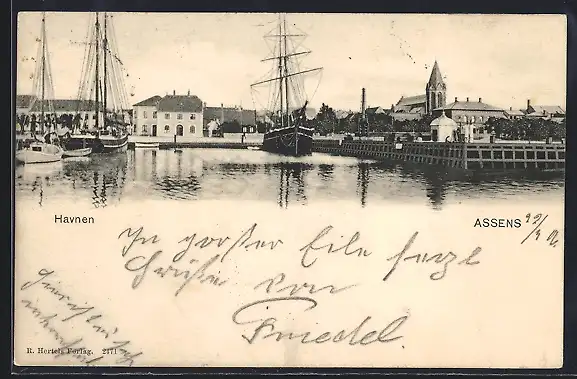 Havnen
ASSENS 22/9 06
In großer Eile herzl
Grüße von
Friedel.
R. Hertels Forlag. 2171